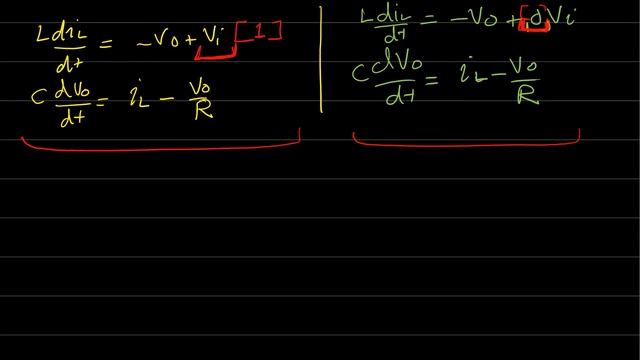 L di_L/dt = -V_o + V_i [1]
C dV_o/dt = i_L - V_o/R
L di_L/dt = -V_o + [0] V_i
C dV_o/dt = i_L - V_o/R